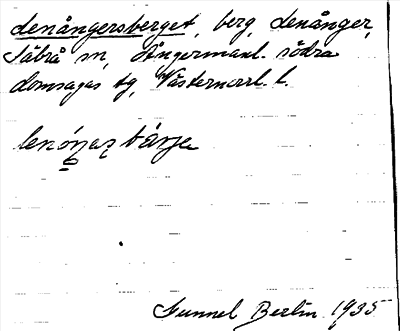 Lenångersberget, berg, Lenånger,
Säbrå sn, Ångermanl. södra
domsagas tg, Västernorrl. l.
Gunnel Berlin 1935